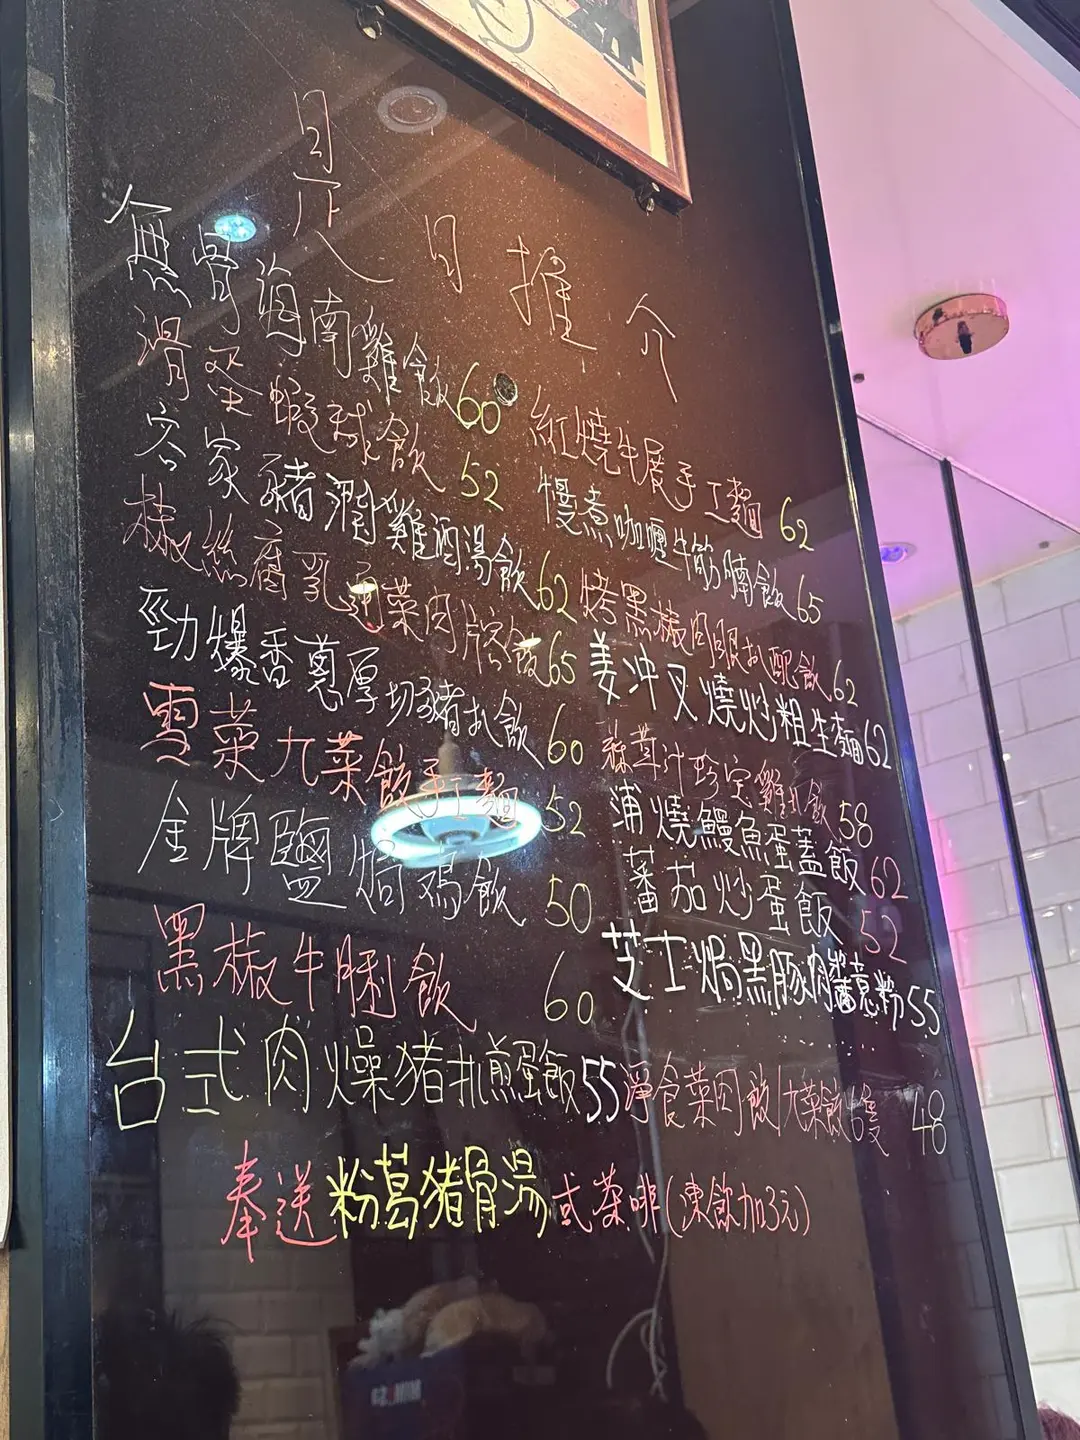 是日推介
無骨海南雞飯 60
滑蛋蝦球飯 52
客家豬潤雞酒湯飯 62
椒絲腐乳通菜肉片窩飯 65
勁爆香蔥厚切豬扒飯 60
雪菜九菜餃手工麵 52
金牌鹽焗鸡飯 50
黑椒牛脷飯 60
台式肉燥猪扒煎蛋飯 55
紅燒牛展手工麵 62
慢煮咖喱牛筋腩飯 65
烤黑椒肉眼扒配飯 62
姜冲叉燒炒粗生麵 62
蘑茸汁珍宝雞扒飯 58
蒲燒鰻魚蛋蓋飯 62
蕃茄炒蛋飯 52
芝士焗黑豚肉醬意粉 55
淨食菜肉餃/九菜餃 8隻 48
奉送粉葛猪骨湯或茶啡(凍飲加3元)